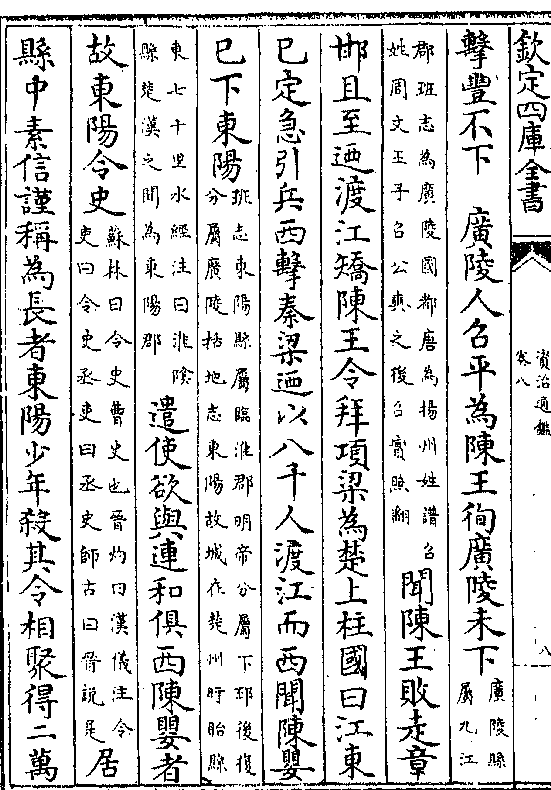 欽定四庫全書
資治通鑑
卷八
八
擊豐不下　廣陵人召平為陳王徇廣陵未下廣陵縣屬九江
郡班志為廣陵國都唐為揚州姓譜召姓周文王子召公奭之後召實照翻聞陳王敗走章
邯且至廼渡江矯陳王令拜項梁為楚上柱國曰江東
已定急引兵西擊秦梁廼以八千人渡江而西聞陳嬰
已下東陽班志東陽縣屬臨淮郡明帝分屬下邳後復分屬廣陵括地志東陽故城在楚州盱眙縣
東七十里水經注曰淮陰縣楚漢之間為東陽郡遣使欲與連和俱西陳嬰者
故東陽令史蘇林曰令史曹史也晉灼曰漢儀注令吏曰令史丞吏曰丞史師古曰晉說是居
縣中素信謹稱為長者東陽少年殺其令相聚得二萬